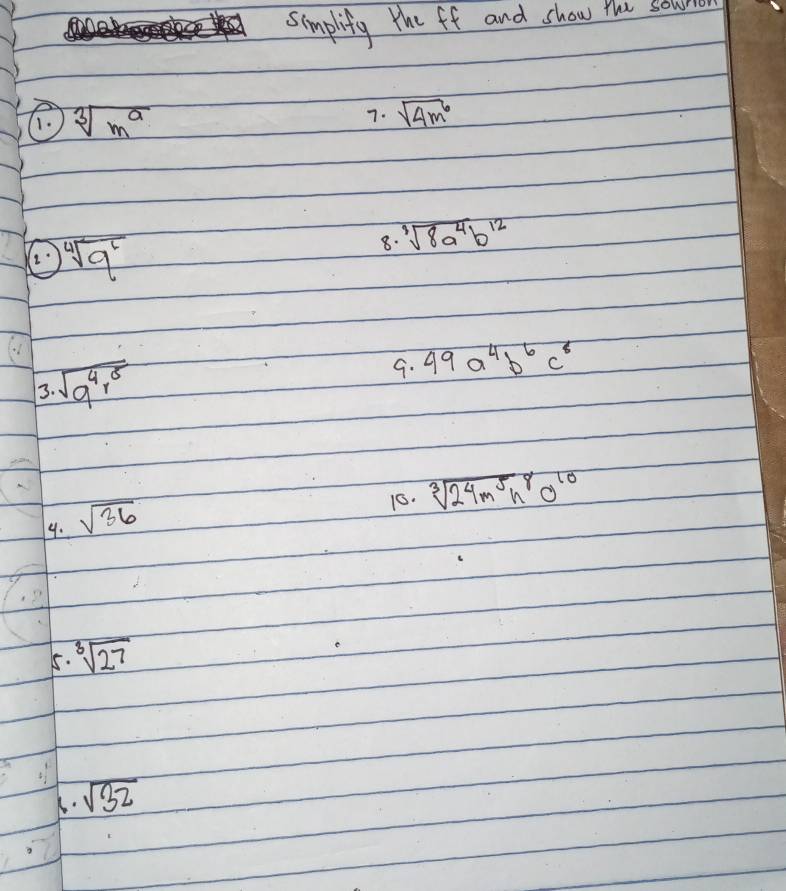 simplify the ff and show the solution
1. ∛m^a
7. √4m^6
2. ∜a^6
8. ∛8a^4 b^12
3. √q^4 r^8
9. 49 a^4 b^6 c^8
4. √36
10. ∛24m^5 n^8 o^10
5. ∛27
6. √32